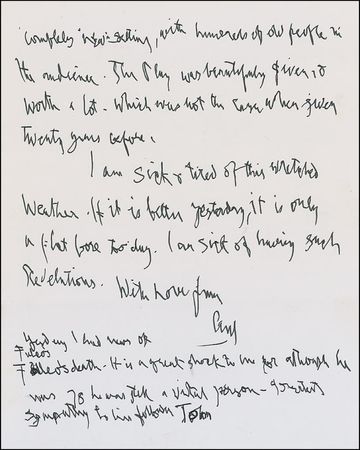 Complete new setting, with hundreds of old people in
the audience. The Play was beautifully given, &
worth a lot. which was not the case when given
Twenty years before.
I am sick & tired of this wretched
Weather. If it is better yesterday, it is only
a to-day. I am sick of having such
Revelations. With Love from
Yesterday I had news of
death. It is a great shock to me for although he
was 78 he was still a vital person -
sympathy to his John